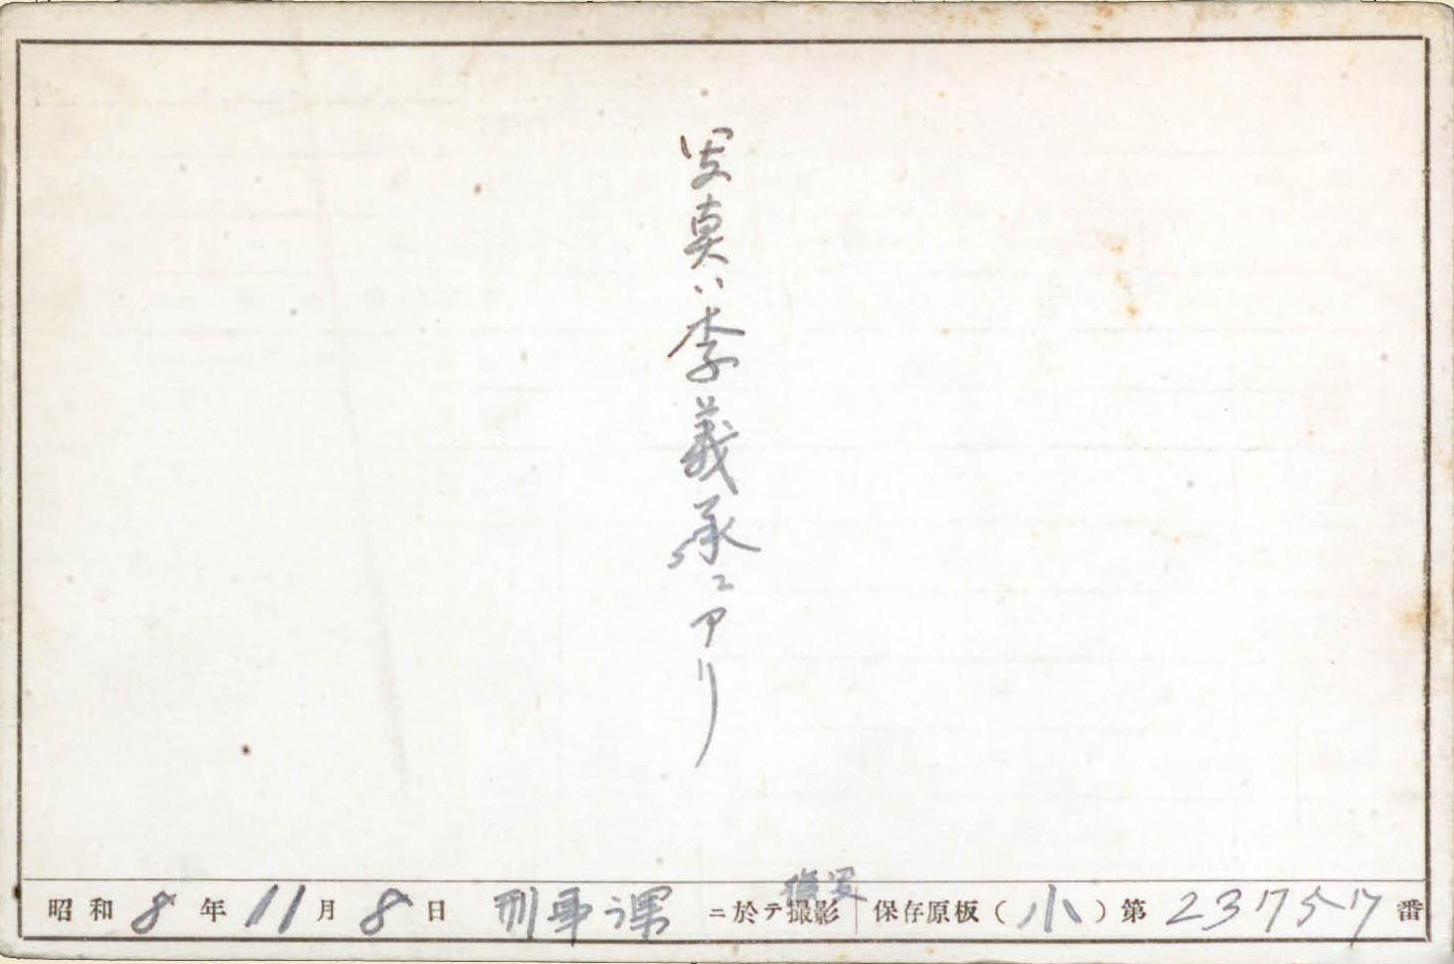 写真ハ李義承ニアリ
複写
昭和8年11月8日 刑事課 ニ於テ撮影 保存原板(小)第23757番